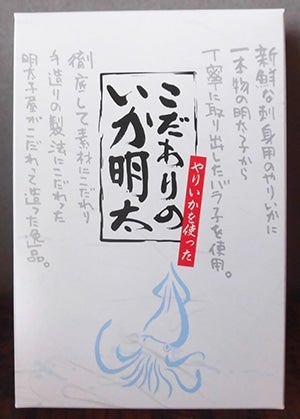 新鮮な刺身用のやりいかに
一本物の明太子から
丁寧に取り出したバラ子を使用。
こだわりの
いか明太
やりいかを使った
徹底して素材にこだわり
手造りの製法にこだわった
明太子屋がこだわって造った逸品。